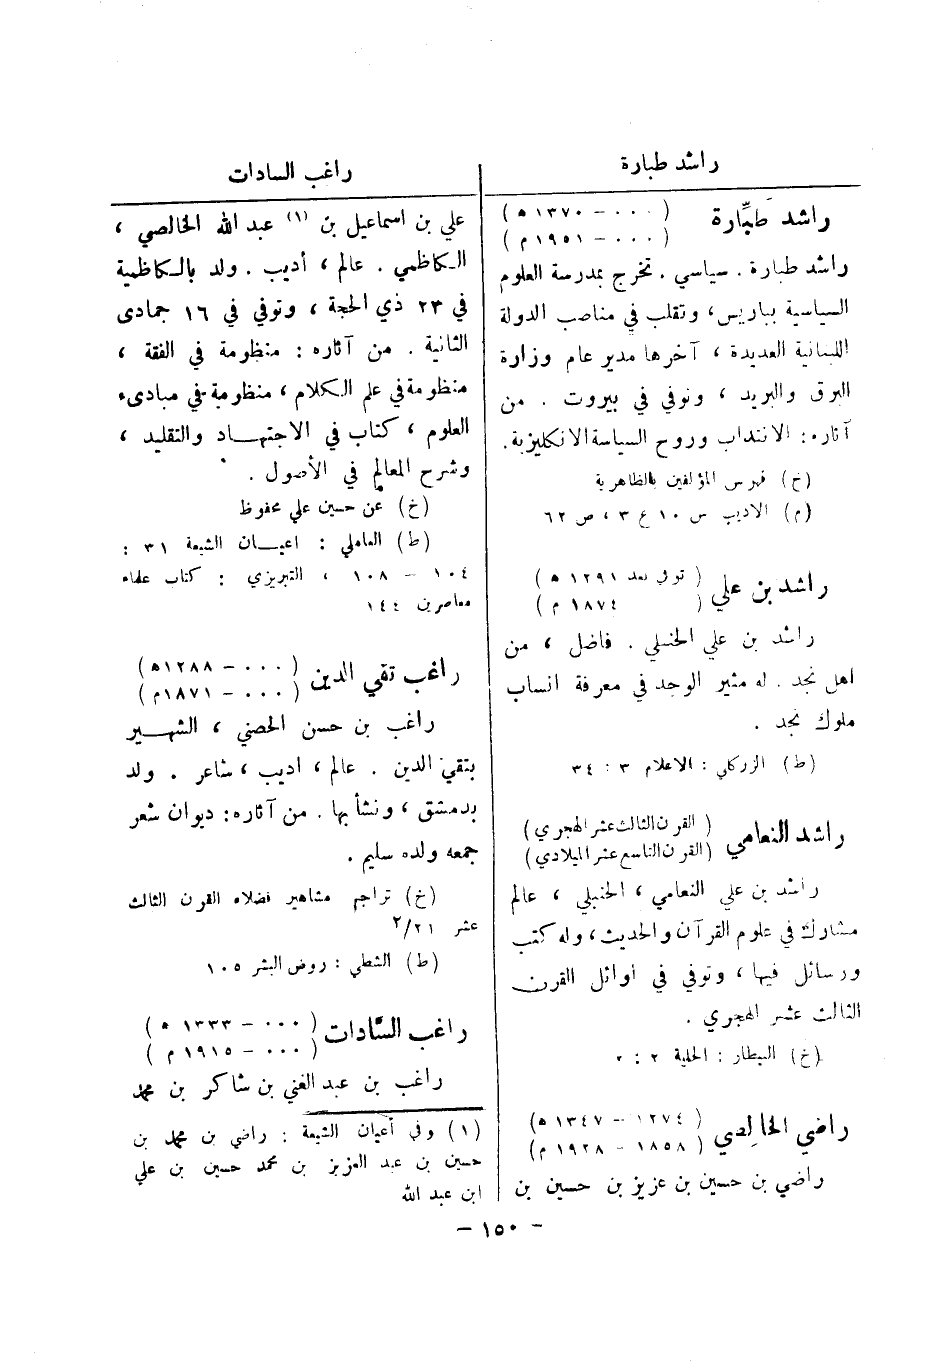 راشد طبارة
راشد طبَّارة (٠٠٠ - ١٣٧٠ ه)
(٠٠٠ - ١٩٥١ م)
راشد طبارة . سياسي . تخرج بمدرسة العلوم
السياسية بباريس، وتقلب في مناصب الدولة
اللبنانية العديدة ، آخرها مدير عام وزارة
البرق والبريد ، وتوفي في بيروت . من
آثاره: الانتداب وروح السياسة الانكليزية.
(خ) فهرس المؤلفين بالظاهرية
(م) الاديب س ١٠ ع ٣ ، ص ٦٢
راشد بن علي (توفي بعد ١٢٩١ ه)
(١٨٧٤ م)
راشد بن علي الحنبلي . فاضل ، من
اهل نجد . له مثير الوجد في معرفة انساب
ملوك نجد .
(ط) الزركلي : الاعلام ٣ : ٣٤
راشد النعامي (القرن الثالث عشر الهجري)
(القرن التاسع عشر الميلادي)
راشد بن علي النعامي ، الحنبلي ، عالم
مشارك في علوم القرآن والحديث، وله كتب
ورسائل فيها ، وتوفي في اوائل القرن
الثالث عشر الهجري .
(خ) البيطار : الحلية ٢ : ٢
راضي الخالصي (١٢٧٤ - ١٣٤٧ ه)
(١٨٥٨ - ١٩٢٨ م)
راضي بن حسين بن عزيز بن حسين بن
راغب السادات
علي بن اسماعيل بن (١) عبد الله الخالصي ،
الكاظمي . عالم ، أديب . ولد بالكاظمية
في ٢٣ ذي الحجة ، وتوفي في ١٦ جمادى
الثانية . من آثاره : منظومة في الفقة ،
منظومة في علم الكلام ، منظومة في مبادىء
العلوم ، كتاب في الاجتهاد والتقليد ،
وشرح المعالم في الأصول .
(خ) عن حسين علي محفوظ
(ط) العاملي : اعيان الشيعة ٣١ :
١٠٤ - ١٠٨ ، التبريزي : كتاب علماء
معاصرين ١٤٤
راغب تقي الدين (٠٠٠ - ١٢٨٨ه)
(٠٠٠ - ١٨٧١م)
راغب بن حسن الحصني ، الشهير
بتقي الدين . عالم ، اديب ، شاعر . ولد
بدمشق ، ونشأ بها . من آثاره: ديوان شعر
جمعه ولده سليم .
(خ) تراجم مشاهير فضلاء القرن الثالث
عشر ٢/٢١
(ط) الشطي : روض البشر ١٠٥
راغب السَّادات (٠٠٠ - ١٣٣٣ ه)
(٠٠٠ - ١٩١٥ م)
راغب بن عبد الغني بن شاكر بن محمد
(١) وفي أعيان الشيعة : راضي بن محمد بن
حسين بن عبد العزيز بن محمد حسين بن علي
ابن عبد الله
- ١٥٠ -